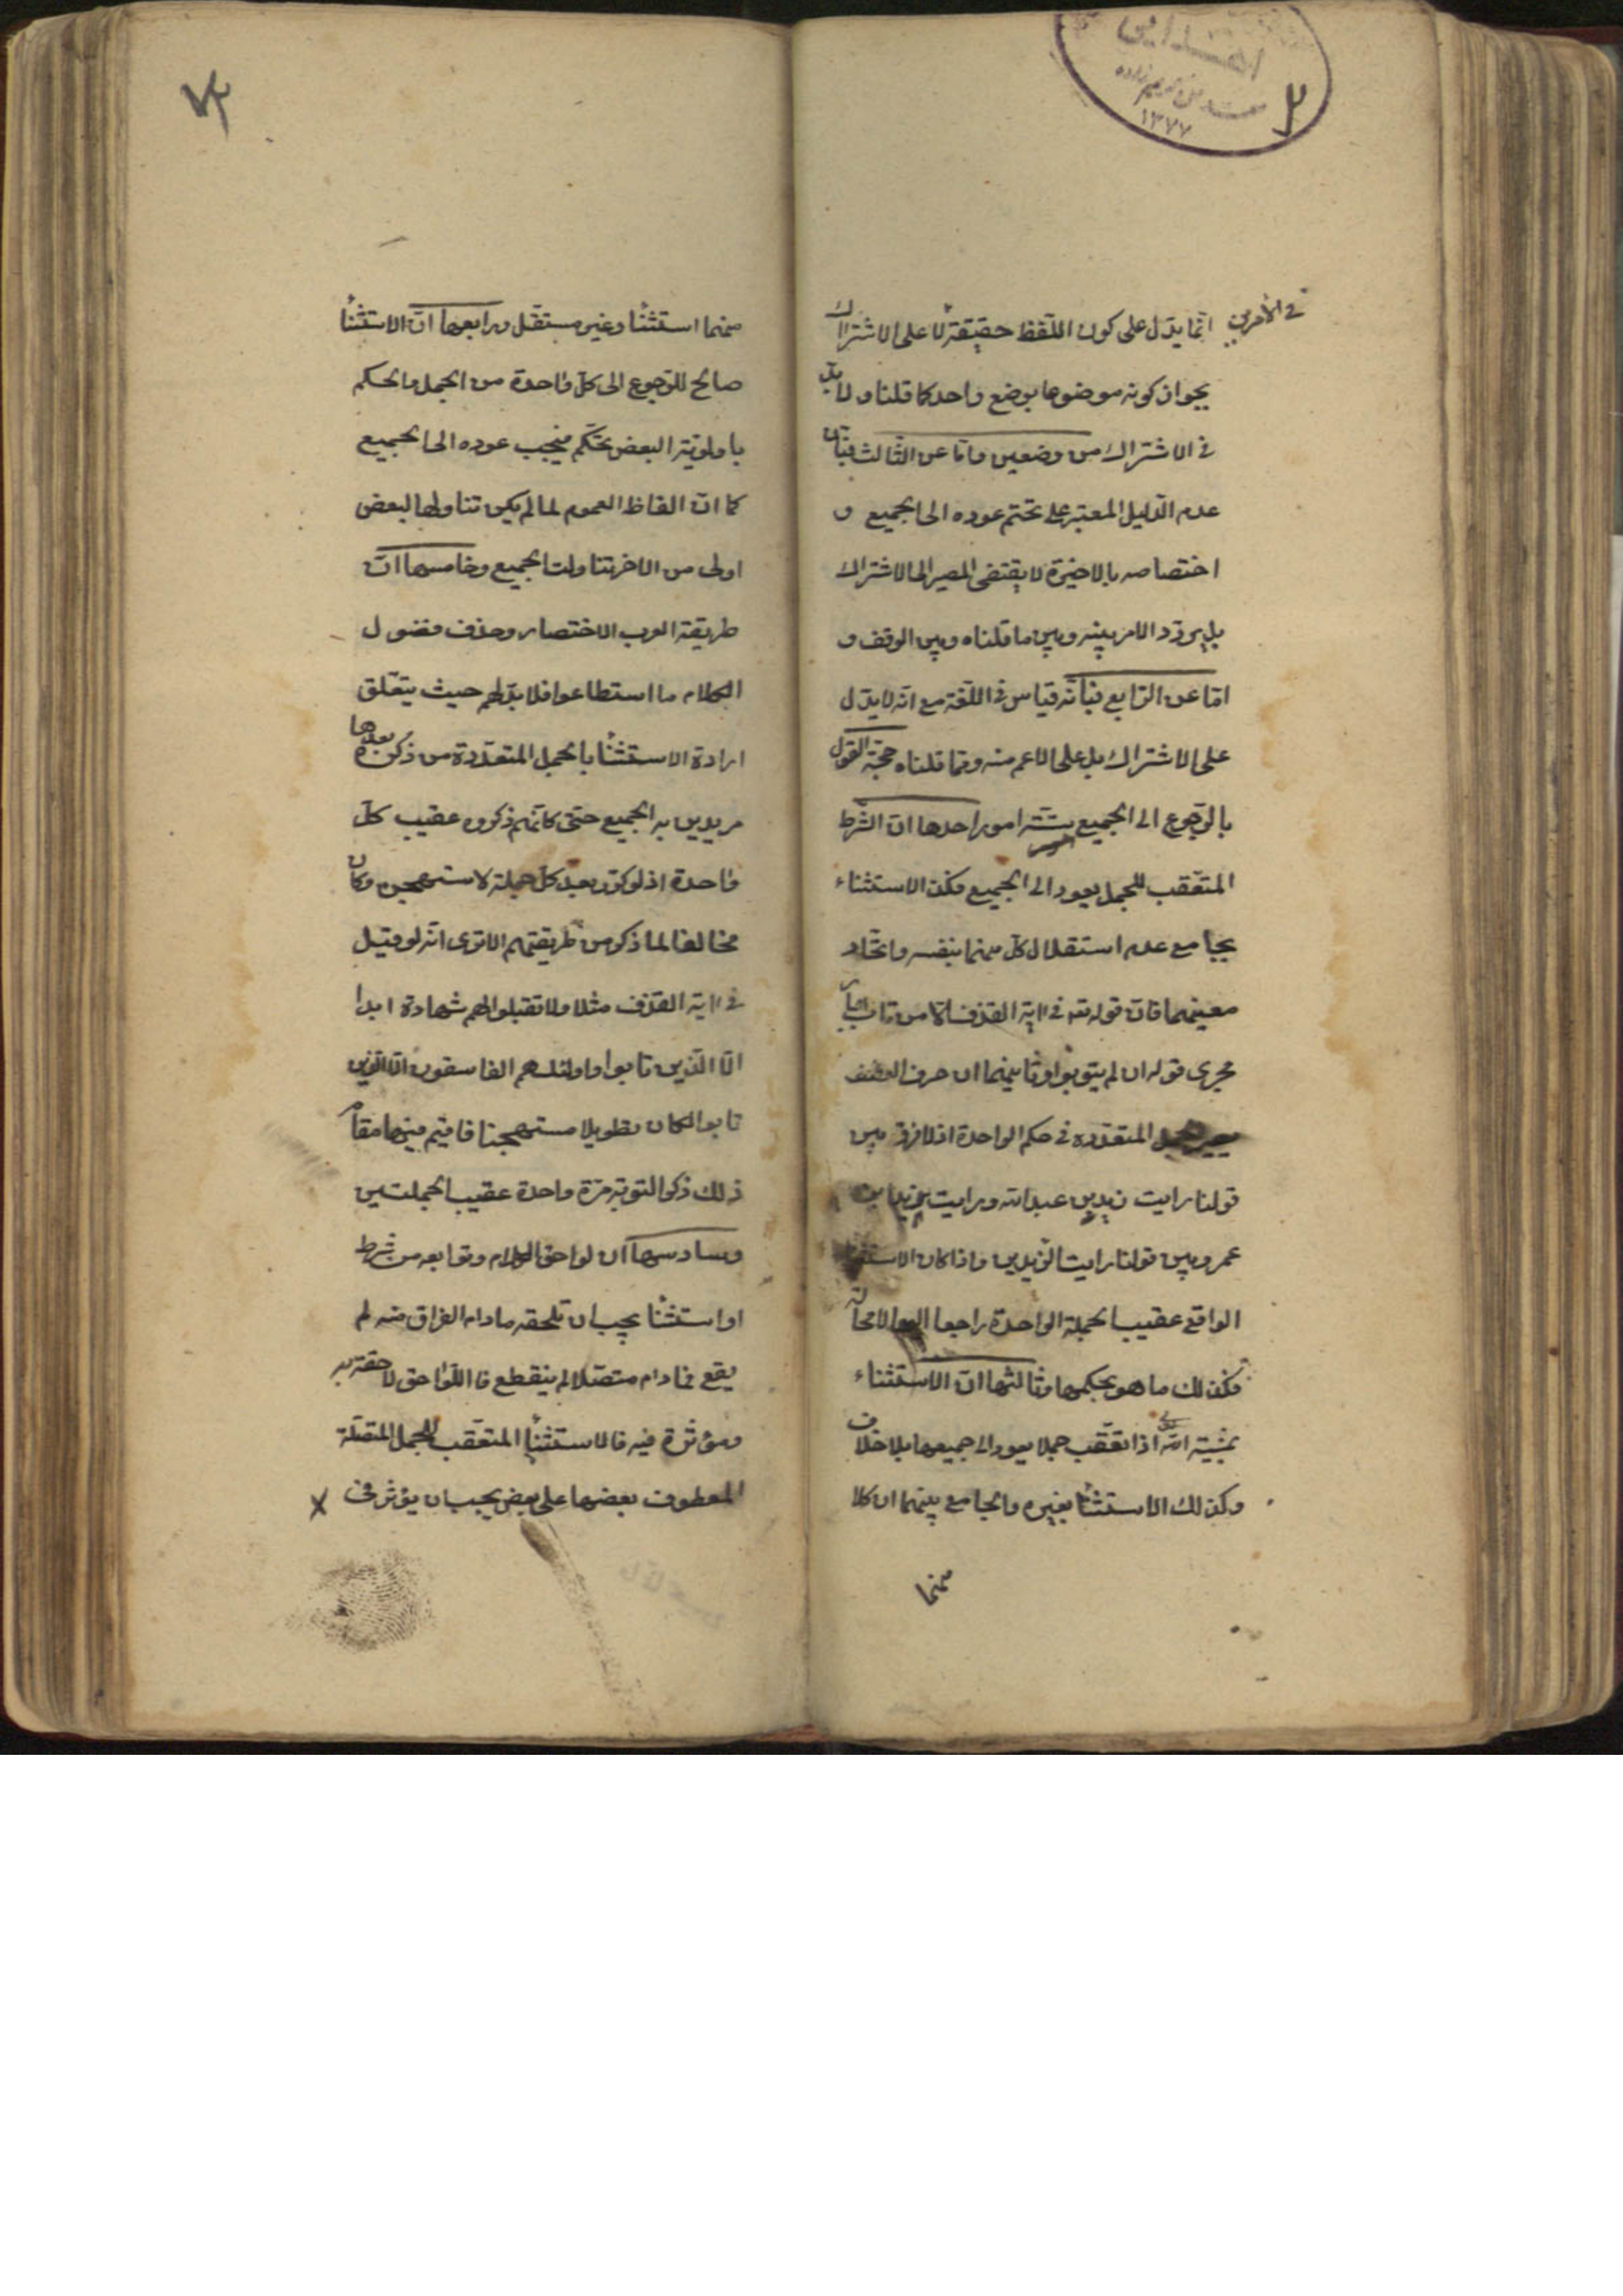 ١٣٧٧
في الأمرين انّما يدّل على كون اللّفظ حقيقة لا على الاشتراك
لجواز كونه موضوعا بوضع واحد كما قلنا ولا بدّ
في الاشتراك من وضعين وامّا عن الثّالث فبانّ
عدم الدّليل المعتبر على تحتّم عوده الى الجميع و
اختصاصه بالاخيرة لا يقتضى المصير الى الاشتراك
بل يتردّد الامر بينه وبين ما قلناه وبين الوقف و
امّا عن الرّابع فبانّه قياس في اللّغة مع انّه لا يدّل
على الاشتراك بل على الاعم منه وممّا قلناه حجّة القول
بالرّجوع الى الجميع ستّة امور احدها انّ الشّرط
المتعّقب للجمل يعود الى الجميع فكذا الاستثناء
بجامع عدم استقلال كلّ منهما بنفسه واتّحاد
معنيهما فانّ قوله تعه في اية القذف الا من تاب جار
مجرى قوله ان لم يتوبوا وثانيهما ان حرف العطف
يصير الجمل المتعدّده في حكم الواحدة اذ لا فرق بين
قولنا رايت زيد بن عبد الله ورايت زيد بن
عمرو وبين قولنا رايت الزّيدين واذا كان الاستثناء
الواقع عقيب الجملة الواحدة راجعا اليها لا محالة
فكذلك ما هو بحكمها وثالثها انّ الاستثناء
بمشية الله تعالى اذا تعقّب جملا يعود الى جميعها بلا خلاف
وكذلك الاستثناء بغيره والجامع بينهما ان كلا
منهما
منهما استثناء وغير مستقّل ورابعها انّ الاستثناء
صالح للرّجوع الى كلّ واحدة من الجمل والحكم
باولويّة البعض تحكّم فيجب عوده الى الجميع
كما انّ الفاظ العموم لما لم يكن تناولها لبعض
اولى من الاخر تناولت الجميع وخامسها انّ
طريقة العرب الاختصار وحذف فضول
الكلام ما استطاعوا فلا بدّ لهم حيث يتعّلق
ارادة الاستثناء بالجمل المتعدّدة من ذكره بعدها
مريدين به الجميع حتى كانّهم ذكروه عقيب كلّ
واحدة اذ لو كرّر بعد كلّ جملة لاستهجن وكان
مخالفا لما ذكر من طريقتهم الا ترى انّه لو قيل
في اية القذف مثلا ولا تقبلوا لهم شهادة ابدا
الّا الّذين تابوا واولئك هم الفاسقون الّا الّذين
تابوا لكان تطويلا مستهجنا فاقيم فيها مقام
ذلك ذكر التوبة مرّة واحدة عقيب الجملتين
وسادسها ان لواحق الكلام وتوابعه من شرط
او استثناء يجب ان تلحقه ما دام الفراق منه لم
يقع فما دام متصّلا لم ينقطع فاللّواحق لاحقة به
ومؤثرة فيه فالاستثناء المتعّقب للجمل المتصّلة
المعطوف بعضها على بعض يجب ان يؤثر في